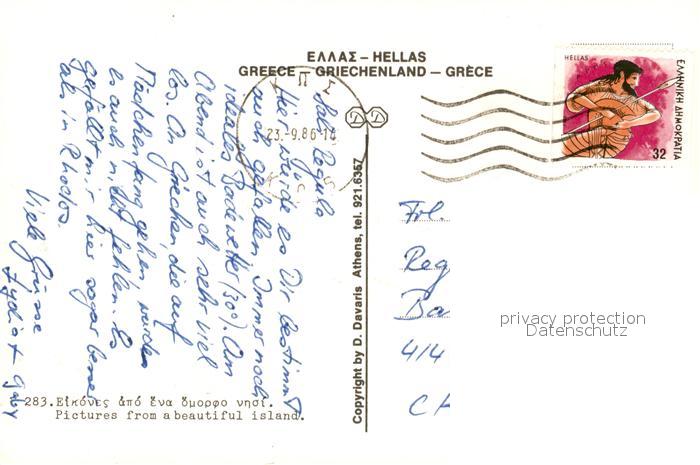 ΕΛΛΑΣ – HELLAS
GREECE – GRIECHENLAND – GRÈCE
HELLAS
ΕΛΛΗΝΙΚΗ ΔΗΜΟΚΡΑΤΙΑ
32
23.-9.86-14
Regula
Hier würde es Dir bestimmt
auch gefallen. Immer noch
ideales Badewetter (30°). Am
Abend ist auch sehr viel
los. An Griechen, die auf
Mädchenfang gehen würden
es auch nicht fehlen. Es
gefällt mir hier sogar besser
als in Rhodos.
Viele Grüsse
Copyright by D. Davaris Athens, tel. 921.6357
Frl.
Reg
Ba
414
CH
privacy protection
Datenschutz
283. Εἰκόνες ἀπό ἕνα ὄμορφο νησί.
Pictures from a beautiful island.